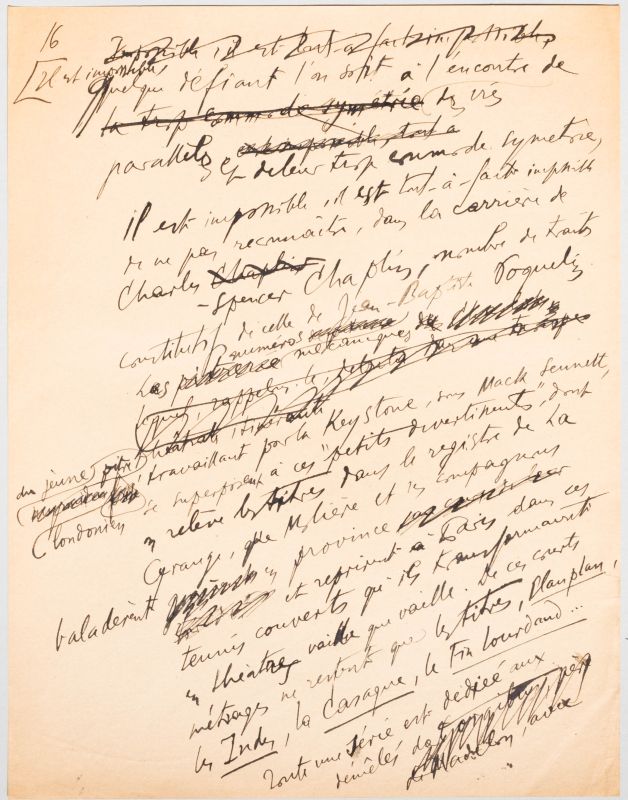 16
Impossible, il est tout-à-fait impossible,
[Il est impossible
Quelque défiant l'on soit à l'encontre de
la trop commode symétrie des vies
parallèles et de leur trop commode symétrie,
il est impossible, il est tout-à-fait impossible
de ne pas reconnaître, dans la carrière de
Charles Chaplin
-Spencer Chaplin, nombre de traits
constitutifs de celle de Jean-Baptiste Poquelin.
Les numéros mécaniques
théâtrale itinérante
du jeune pitre
londonien
travaillant par la Keystone, sous Mack Sennett,
se superposent à ces "petits divertissements", dont
on relève les titres dans le registre de La
Grange, que Molière et ses compagnons
baladèrent en province
et reprirent à Paris dans ces
tennis couverts qu'ils transformaient
en théâtres vaille que vaille. De ces courts
métrages ne restent que les titres, Plan plan,
les Indes, la Casaque, le Fin Lourdaud...
Toute une série est dédiée aux
démêlés de
de Madelon, avec